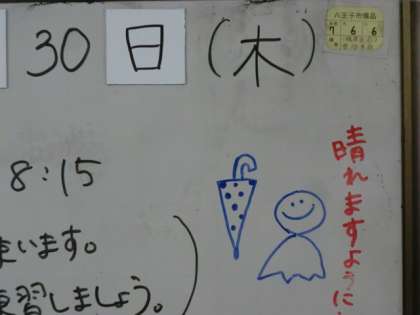 30日(木)
八王子市備品
7 6 6
8:15
晴れますように
います。
習しましょう。